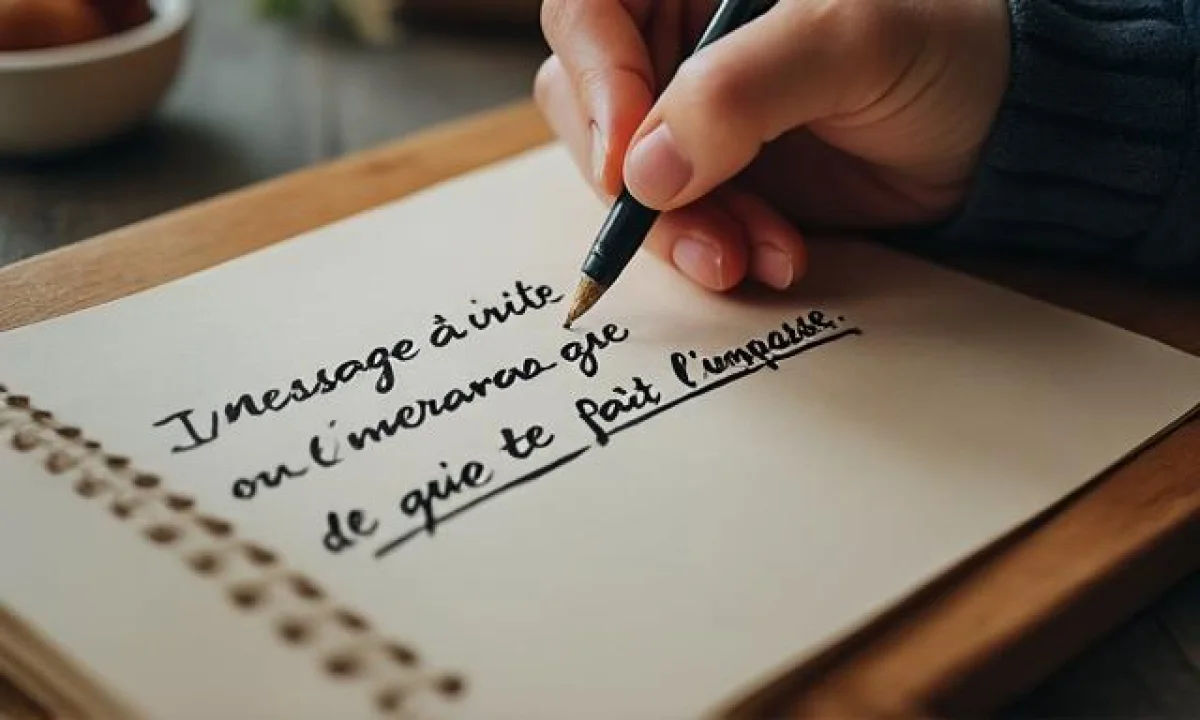 I message à irite
ou l'imerarva gre
de qrie te fait l'imparse.